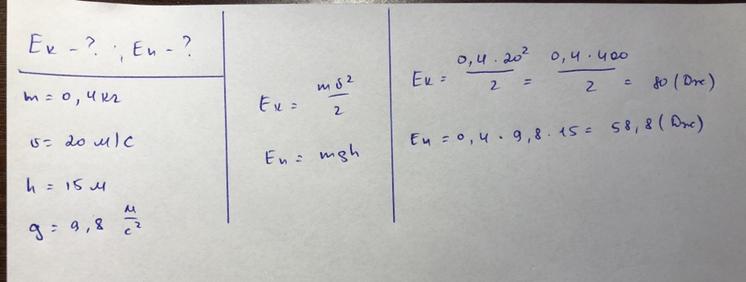 Eк - ? ; Eп - ?
m = 0,4 кг
υ = 20 м/с
h = 15 м
g = 9,8 м/с²
Eк = mυ²/2
Eп = mgh
Eк = 0,4 · 20²/2 = 0,4 · 400/2 = 80 (Дж)
Eп = 0,4 · 9,8 · 15 = 58,8 (Дж)